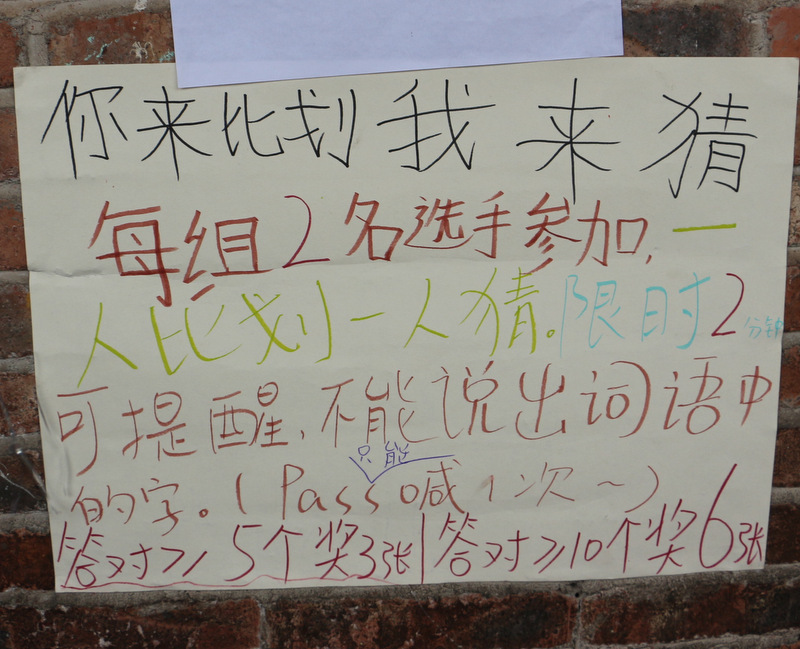 你来比划我来猜
每组2名选手参加,一
人比划一人猜。限时2分钟
可提醒,不能说出词语中
只能
的字。(Pass喊1次~)
答对≥5个奖3张|答对≥10个奖6张